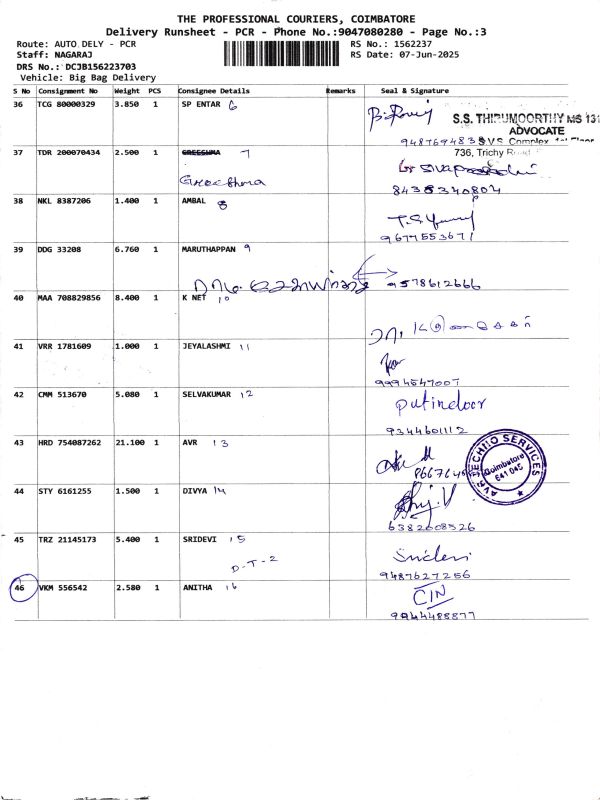 THE PROFESSIONAL COURIERS, COIMBATORE
Delivery Runsheet - PCR - Phone No.:9047080280 - Page No.:3
Route: AUTO DELY - PCR
RS No.: 1562237
Staff: NAGARAJ
RS Date: 07-Jun-2025
DRS No.: DCJB156223703
Vehicle: Big Bag Delivery
S No Consignment No Weight PCS Consignee Details Remarks Seal & Signature
36 TCG 80000329 3.850 1 SP ENTAR 6
S.S. THIRUMOORTHY MS 131
ADVOCATE
S.V.S Complex, 1st Floor
736, Trichy Road
37 TDR 200070434 2.500 1 GREESHMA 7
Greeshma
8438340804
38 NKL 8387206 1.400 1 AMBAL 8
9677553671
39 DDG 33208 6.760 1 MARUTHAPPAN 9
9578612666
40 MAA 708829856 8.400 1 K NET 10
41 VRR 1781609 1.000 1 JEYALASHMI 11
9994547007
42 CMM 513670 5.080 1 SELVAKUMAR 12
Putindoor
9344601112
43 HRD 754087262 21.100 1 AVR 13
AVR TECHNO SERVICES
Coimbatore
641 045
44 STY 6161255 1.500 1 DIVYA 14
6382608526
45 TRZ 21145173 5.400 1 SRIDEVI 15
D-T-2
Sridevi
9487627256
46 VKM 556542 2.580 1 ANITHA 16
CIN
9944488877